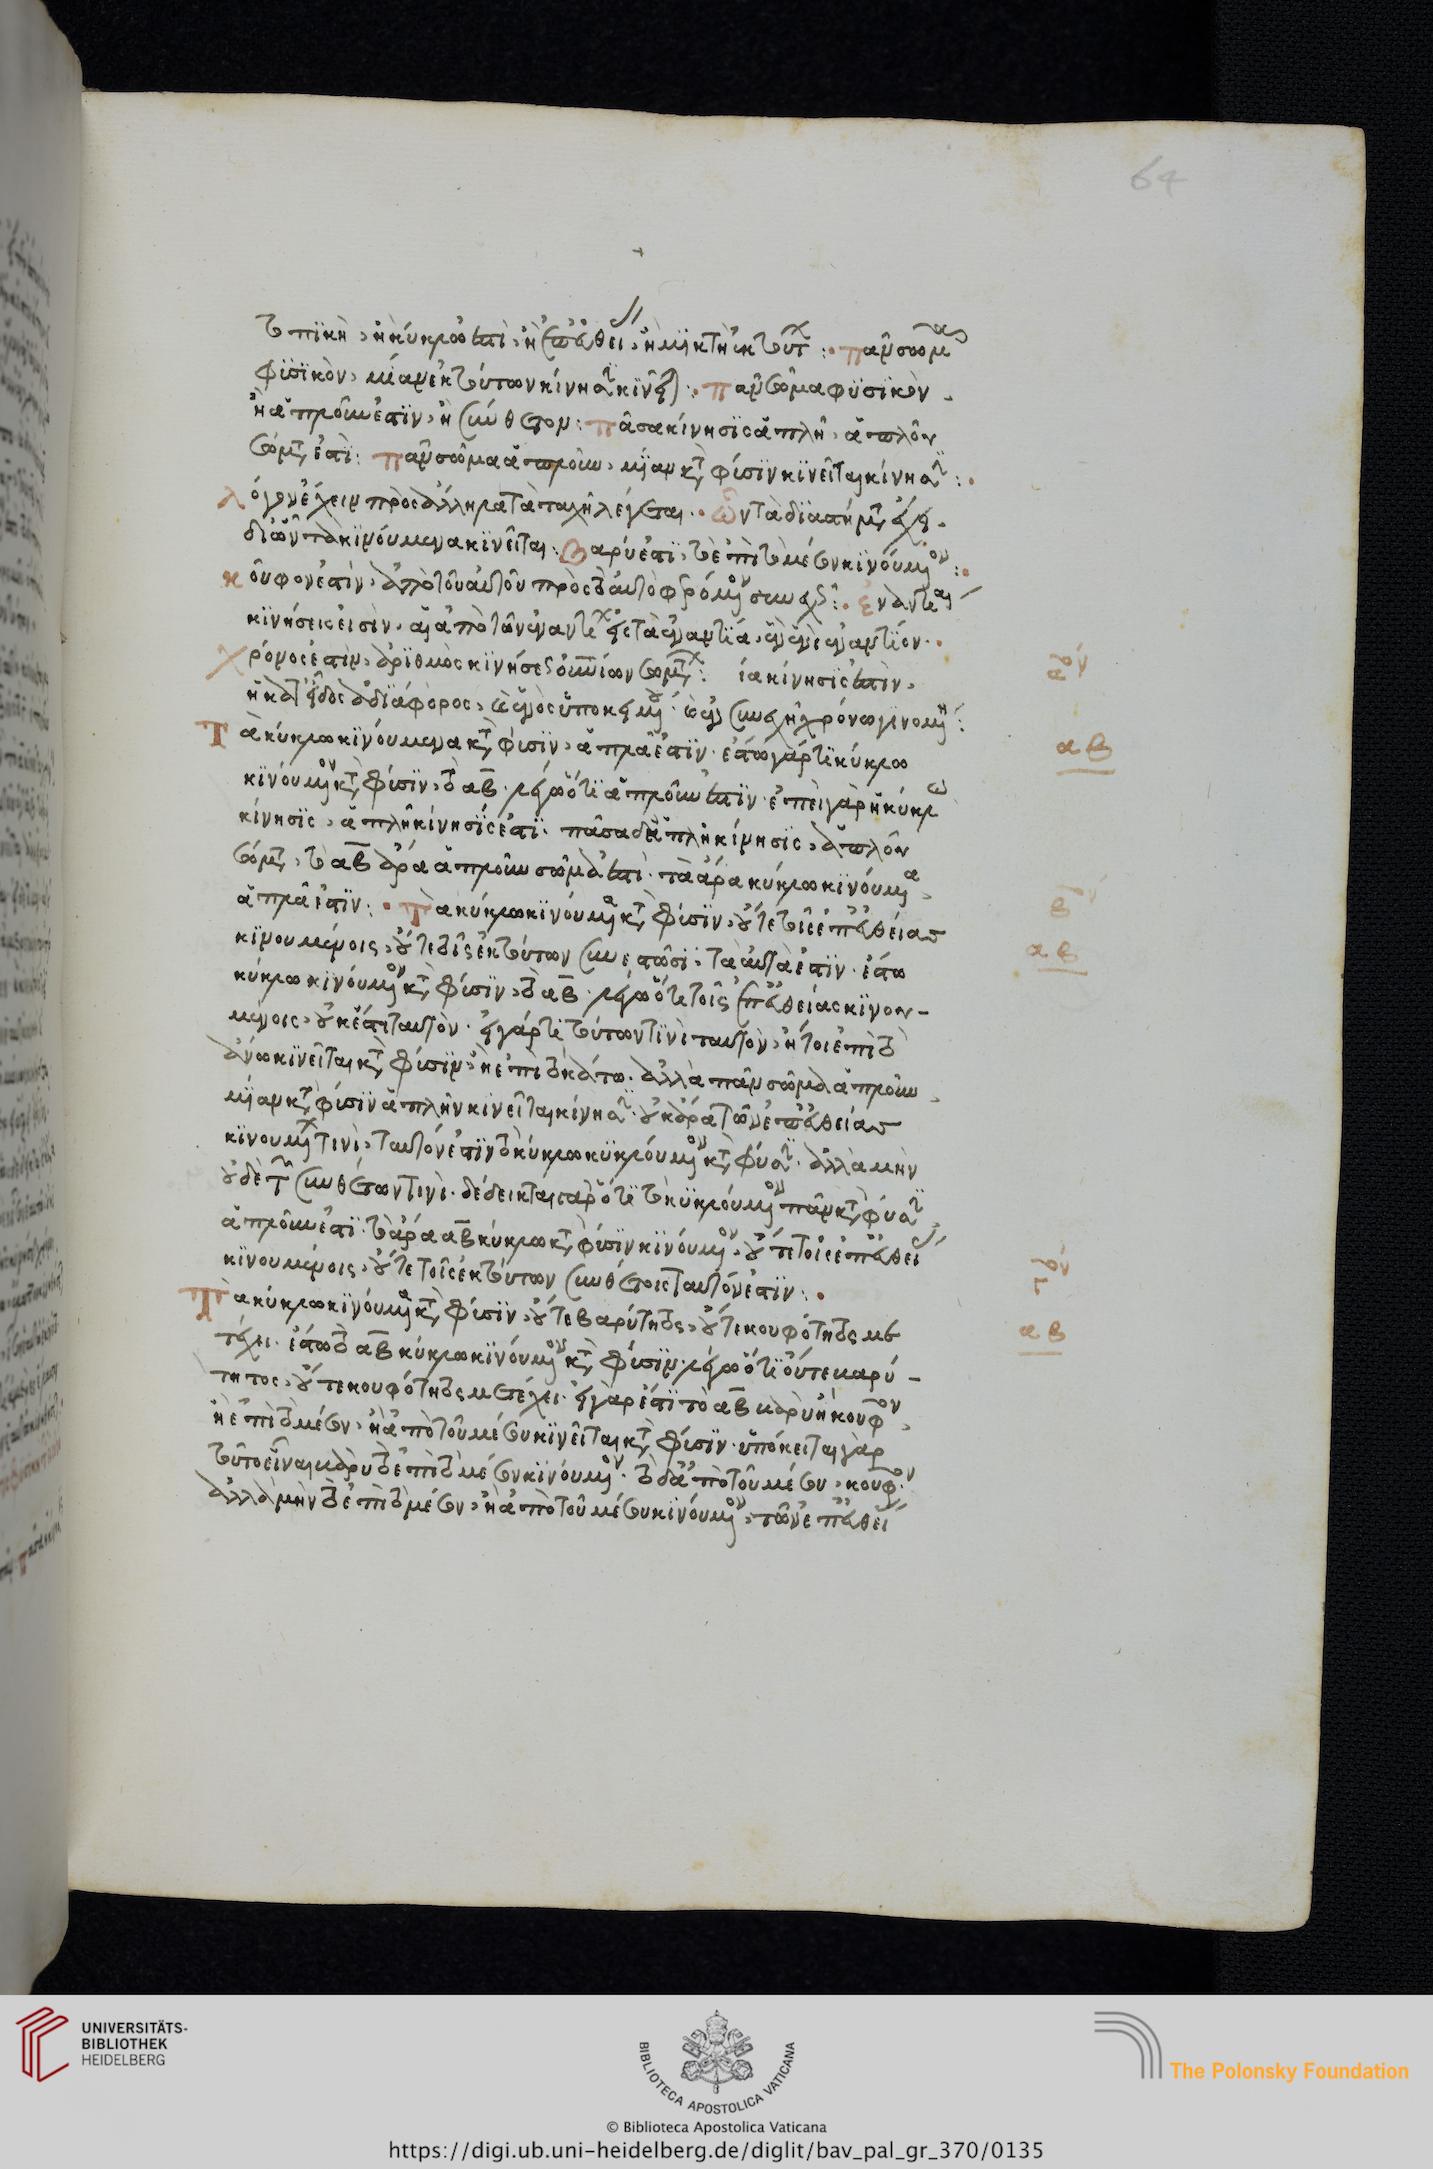 64
τοπϊκὴ, ἢ κύκλω ἐστὶ, ἢ ἐπ' εὐθείας, ἢ μϊκτὴ ἐκ τούτων :· πᾶν σῶμα
φϋσϊκὸν, μίαν ἐκ τούτων κίνησιν κϊνεῖται :· πᾶν σῶμα φϋσϊκὸν
ἢ ἁπλοῦν ἐστϊν, ἢ σύνθετον : πᾶσα κίνησϊς ἁπλῆ, ἁπλοῦ
σώματος ἐστὶ : πᾶν σῶμα ἁπλοῦν, μϊαν κατὰ φύσϊν κϊνεῖται κίνησιν :·
λόγον ἔχειν πρὸς ἄλληλα τὰ ταχῆ λέγεται · ὃν τὰ δϊαστήματα ἔχει ·
δι' ὧν τὰ κϊνούμενα κϊνεῖται : βαρύ ἐστϊ, τὸ ἐπὶ τὸ μέσον κϊνούμενον :·
κοῦφον ἐστὶν, ἀπὸ τοῦ αὐτοῦ πρὸς τὸ αὐτὸ
κϊνήσεις εἰσὶν, αἱ ἀπὸ τῶν ἐναντίων εἰς τὰ ἐναντϊά, ἓν ἑνὶ ἐναντϊόν ·
χρόνος ἐστὶν, ἀρϊθμὸς κϊνήσεως οὐρανίων σωμάτων : ία κίνησϊς ἐστὶν,
ἡ κατ' εἶδος ἀδϊάφορος, καὶ ἑνὸς ὑποκειμένου · καὶ ἐν συνεχεῖ χρόνω γϊνομένη :
Τὰ κύκλω κϊνούμενα κατὰ φύσϊν, ἁπλᾶ ἐστϊν · ἔστω γάρ τϊ κύκλω
κϊνούμενον κατὰ φύσϊν, τὸ αβ · λέγω ὅτϊ ἁπλοῦν ἐστϊν · ἐπεὶ γὰρ ἡ κύκλω
κίνησϊς, ἁπλῆ κίνησϊς ἐστϊ · πᾶσα δὲ ἁπλῆ κίνησϊς, ἁπλοῦ
σώματος, τὸ αβ ἄρα ἁπλοῦν σῶμα ἐστὶ · τὰ ἄρα κύκλω κϊνούμενα,
ἁπλᾶ ἐστϊν :· Τὰ κύκλω κϊνούμενα κατὰ φύσϊν, οὔτε τοῖς ἐπ' εὐθείας
κϊνουμένοις, οὔτε τοῖς ἐκ τούτων συνεστῶσϊ, ταὐτὰ ἐστϊν · ἔστω
κύκλω κϊνούμενον κατὰ φύσϊν, τὸ αβ · λέγω ὅτϊ τοῖς ἐπ' εὐθείας κϊνου-
μένοις, οὐκ ἔστι ταυτὸν · εἰ γάρ τϊ τούτων τϊνὶ ταυτὸν, ἤτοι ἐπὶ τὸ
ἄνω κϊνεῖται κατὰ φύσϊν, ἢ ἐπὶ τὸ κάτω · ἀλλὰ πᾶν σῶμα ἁπλοῦν
μϊαν κατὰ φύσϊν ἁπλῆν κϊνεῖται κίνησιν · οὐκ ἄρα τῶν ἐπ' εὐθείας
κϊνουμένων τινὶ, ταυτόν ἐστϊν τὸ κύκλω κϋκλούμενον κατὰ φύσιν · ἀλλὰ μὴν
οὐδὲ τῶν συνθέτων τινὶ · δέδεικται γὰρ ὅτϊ τὸ κϋκλούμενον πᾶν κατὰ φύσιν,
ἁπλοῦν ἐστϊ · τὸ ἄρα αβ κύκλω κατὰ φύσϊν κϊνούμενον, οὔτε τοῖς ἐπ' εὐθείας
κϊνουμένοις, οὔτε τοῖς ἐκ τούτων συνθέτοις ταυτόν ἐστϊν :·
Τὰ κύκλω κϊνούμενα κατὰ φύσϊν, οὔτε βαρύτητος, οὔτε κουφότητος με
τέχει · ἔστω τὸ αβ κύκλω κϊνούμενον κατὰ φύσϊν · λέγω ὅτϊ οὔτε βαρύ-
τητος, οὔτε κουφότητος μετέχει · εἰ γὰρ ἐστϊ τὸ αβ βαρὺ ἢ κοῦφον,
ἢ ἐπὶ τὸ μέσον, ἢ ἀπὸ τοῦ μέσου κϊνεῖται κατὰ φύσϊν · ὑπόκειται γὰρ
τοῦτο εἶναι βαρὺ τὸ ἐπὶ τὸ μέσον κϊνούμενον · τὸ δὲ ἀπὸ τοῦ μέσου, κοῦφον ·
ἀλλὰ μὴν τὸ ἐπὶ τὸ μέσον, ἢ ἀπὸ τοῦ μέσου κϊνούμενον, τῶν ἐπ' εὐθείας
αβ
αβ
αβ
UNIVERSITÄTS-
BIBLIOTHEK
HEIDELBERG
BIBLIOTECA APOSTOLICA VATICANA
© Biblioteca Apostolica Vaticana
The Polonsky Foundation
https://digi.ub.uni-heidelberg.de/diglit/bav_pal_gr_370/0135